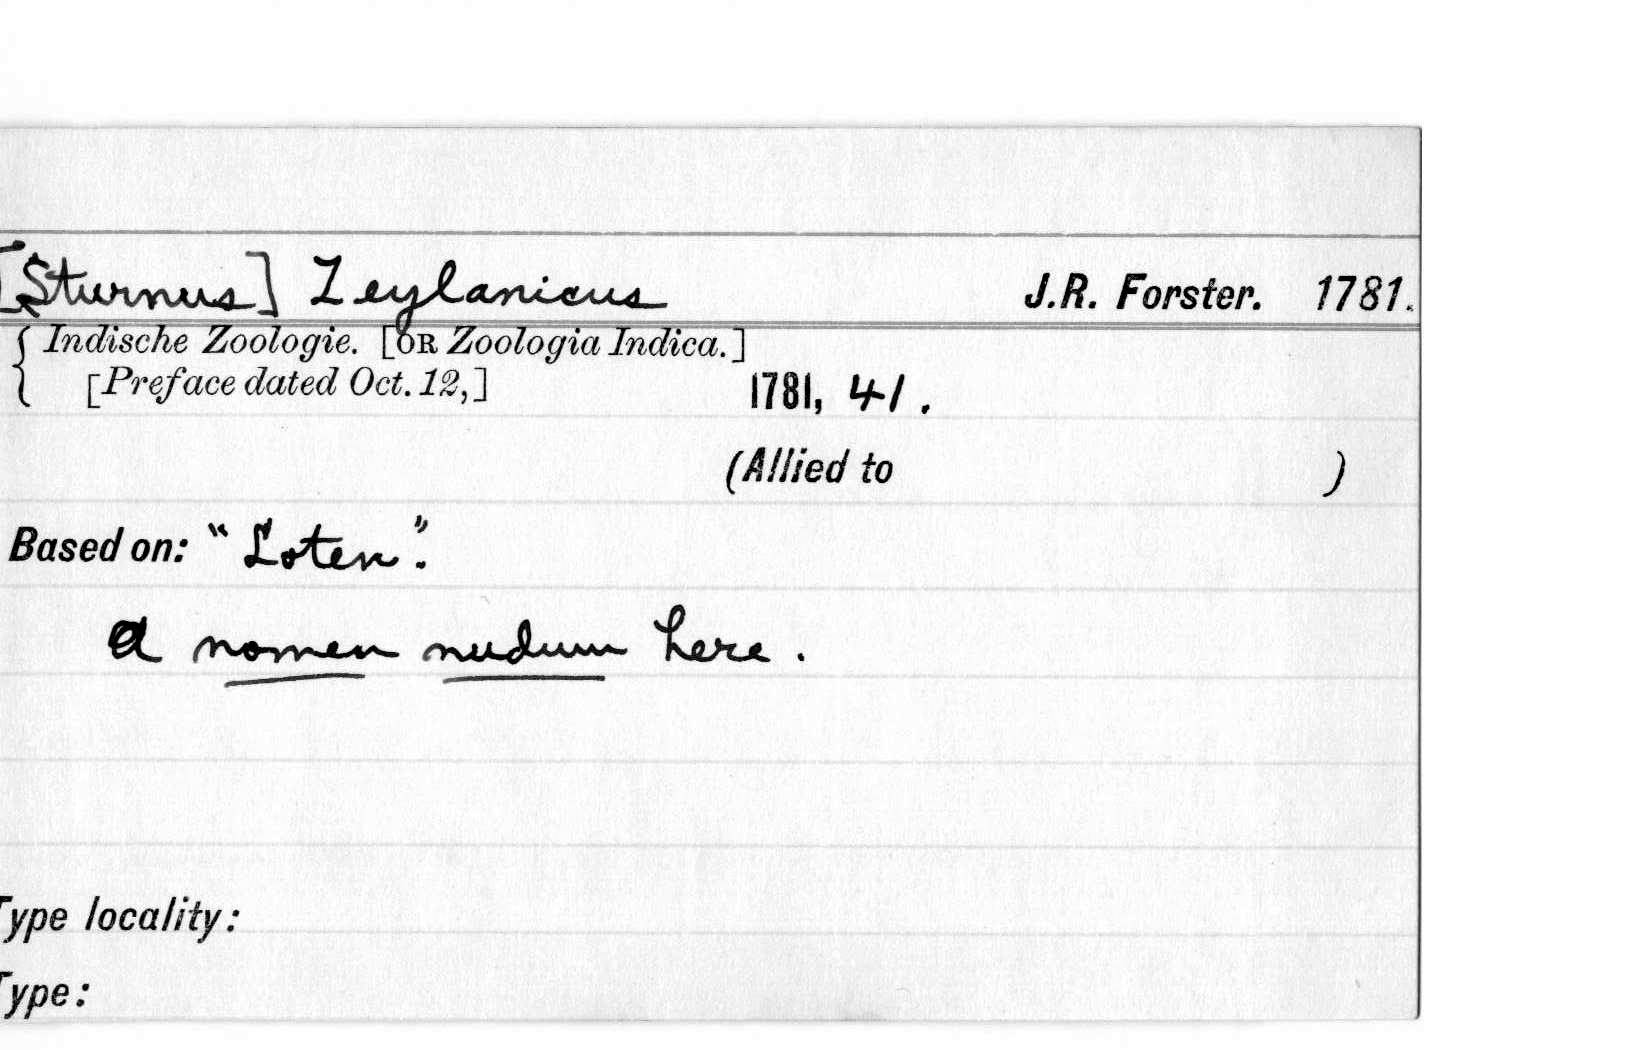 [Sturnus] Zeylanicus J.R. Forster. 1781.
{ Indische Zoologie. [OR Zoologia Indica.]
[Preface dated Oct. 12,] 1781, 41.
(Allied to )
Based on: "Loten".
A nomen nudum here.
Type locality:
Type: